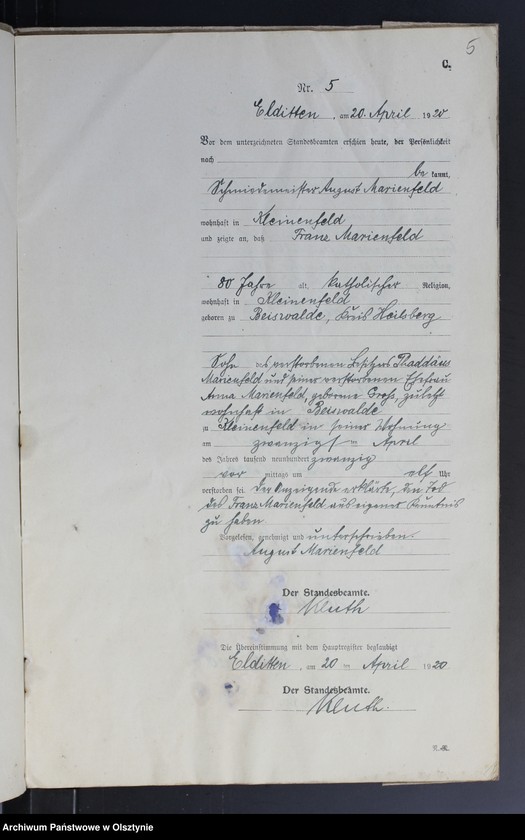 5
C.
Nr. 5
Elditten, am 20. April 1920
Vor dem unterzeichneten Standesbeamten erschien heute, der Persönlichkeit
nach
be kannt,
Schmiedemeister August Marienfeld
wohnhaft in Kleinenfeld
und zeigte an, daß Franz Marienfeld
80 Jahre alt, katholischer Religion,
wohnhaft in Kleinenfeld
geboren zu Beiswalde, Kreis Heilsberg
Sohn des verstorbenen Besitzers Thaddäus
Marienfeld und seiner verstorbenen Ehefrau
Anna Marienfeld, geborene Groß, zuletzt
wohnhaft in Beiswalde
zu Kleinenfeld in seiner Wohnung
am zwanzigsten April
des Jahres tausend neunhundert zwanzig
vor mittags um elf Uhr
verstorben sei. Der Anzeigende erklärte, den Tod
des Franz Marienfeld aus eigener Kenntnis
zu haben
Vorgelesen, genehmigt und unterschrieben.
August Marienfeld
Der Standesbeamte.
Kluth
Die Übereinstimmung mit dem Hauptregister beglaubigt
Elditten, am 20 ten April 1920
Der Standesbeamte.
Kluth.
Archiwum Państwowe w Olsztynie